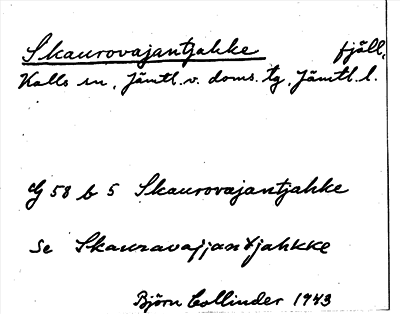 Skaurovajantjahke fjäll,
Kalls sn, Jämtl. v. doms. tg, Jämtl. l.
G 58 b 5 Skaurovajantjahke
Se
Björn Collinder 1943